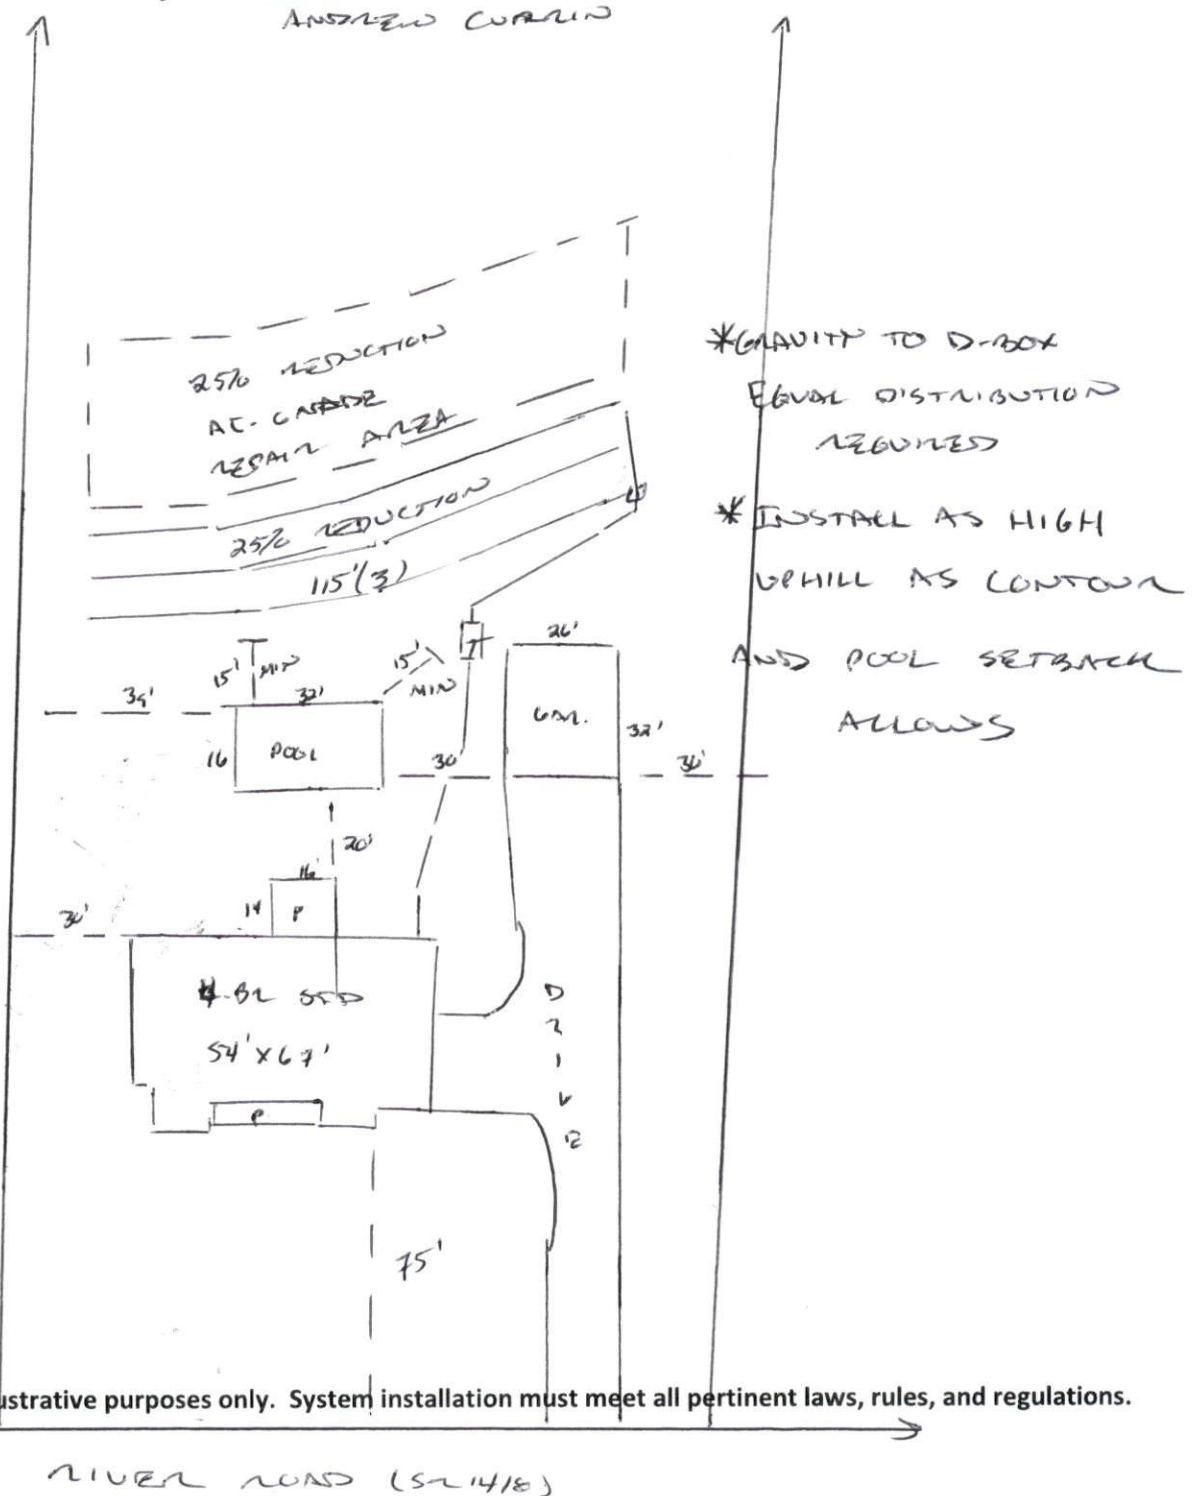 ANDREW CURRIN
25% REDUCTION
AT-GRADE
REPAIR AREA
25% REDUCTION
115'(3)
*GRAVITY TO D-BOX
EQUAL DISTRIBUTION
REQUIRED
* INSTALL AS HIGH
UPHILL AS CONTOUR
AND POOL SETBACK
ALLOWS
15' MIN
15'
MIN
T
26'
32'
16
POOL
GAR.
32'
30'
20'
16'
14
P
30'
4-BR SFD
54'X67'
P
DRIVE
75'
ustrative purposes only. System installation must meet all pertinent laws, rules, and regulations.
RIVER ROAD (SR 1418)